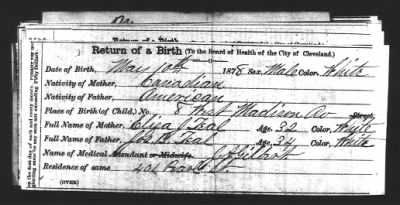 Return of a Birth (To the Board of Health of the City of Cleveland.)
Date of Birth, May 10th 1878 Sex, Male Color, White
Nativity of Mother, Canadian
Nativity of Father, American
Place of Birth (of Child,) No. 8 West Madison Av Street,
Full Name of Mother, Eliza J Seal Age, 32 Color, White
Full Name of Father, Jos H. Seal Age, 34 Color, White
Name of Medical Attendant or Midwife,
Residence of same, 401 St.
(OVER)